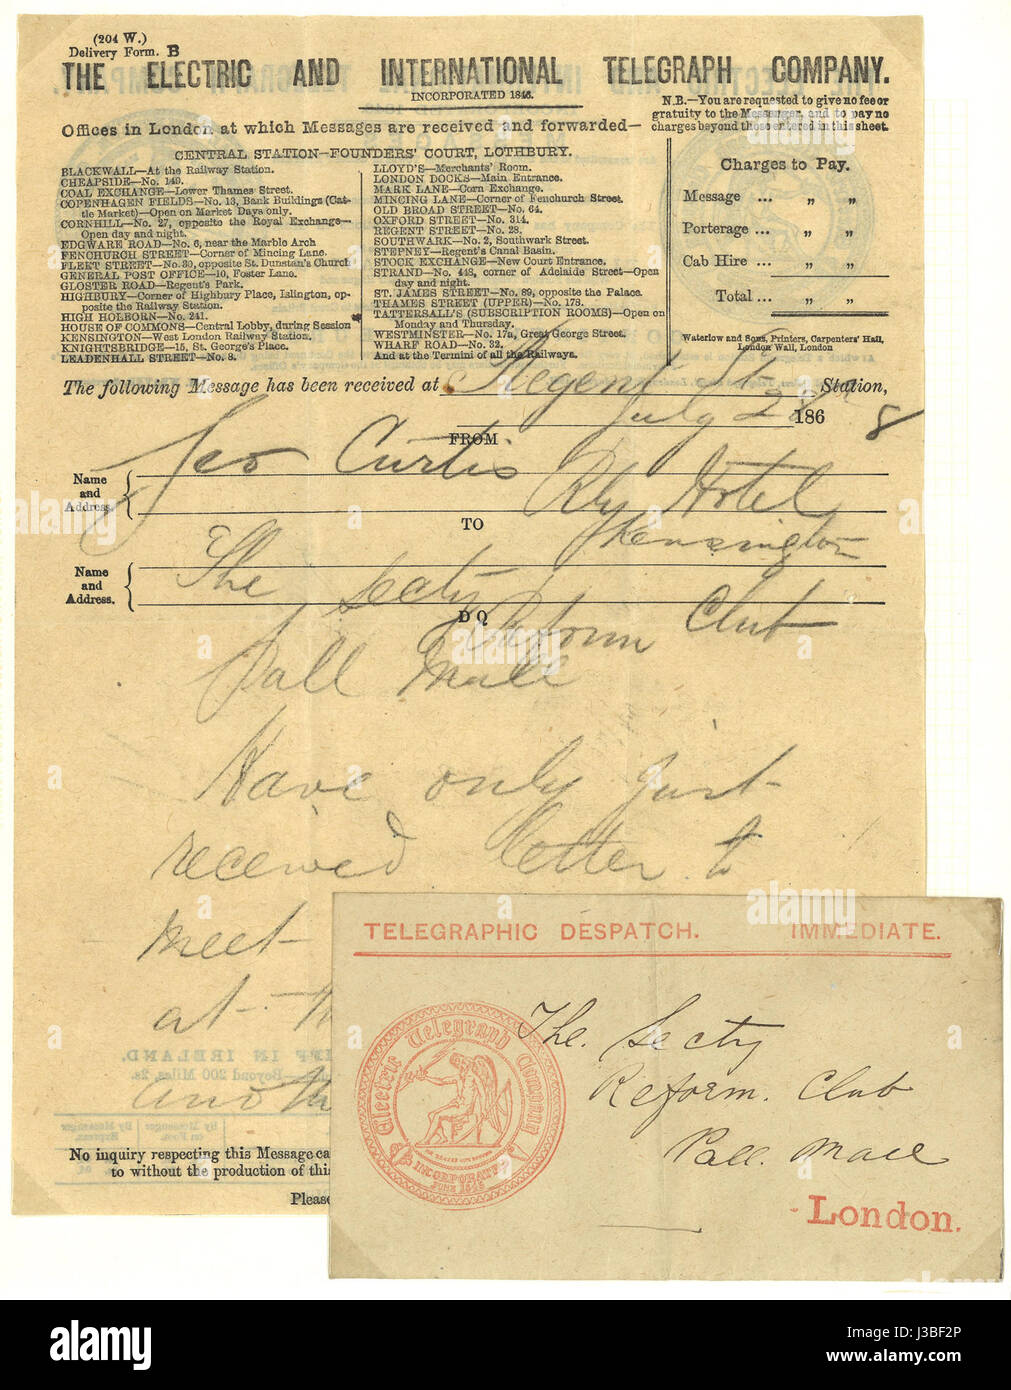 (204 W.)
Delivery Form. B
THE ELECTRIC AND INTERNATIONAL TELEGRAPH COMPANY.
INCORPORATED 1846.
Offices in London at which Messages are received and forwarded—
CENTRAL STATION—FOUNDERS' COURT, LOTHBURY.
BLACKWALL—At the Railway Station.
CHEAPSIDE—No. 140.
COAL EXCHANGE—Lower Thames Street.
COPENHAGEN FIELDS—No. 13, Bank Buildings (Cat-
tle Market)—Open on Market Days only.
CORNHILL—No. 27, opposite the Royal Exchange—
Open day and night.
EDGWARE ROAD—No. 6, near the Marble Arch
FENCHURCH STREET—Corner of Mincing Lane.
FLEET STREET—No. 30, opposite St. Dunstan's Church
GENERAL POST OFFICE—10, Foster Lane.
GLOSTER ROAD—Regent's Park.
HIGHBURY—Corner of Highbury Place, Islington, op-
posite the Railway Station.
HIGH HOLBORN—No. 241.
HOUSE OF COMMONS—Central Lobby, during Session
KENSINGTON—West London Railway Station.
KNIGHTSBRIDGE—15, St. George's Place.
LEADENHALL STREET—No. 8.
LLOYD'S—Merchants' Room.
LONDON DOCKS—Main Entrance.
MARK LANE—Corn Exchange.
MINCING LANE—Corner of Fenchurch Street.
OLD BROAD STREET—No. 64.
OXFORD STREET—No. 314.
REGENT STREET—No. 28.
SOUTHWARK—No. 2, Southwark Street.
STEPNEY—Regent's Canal Basin.
STOCK EXCHANGE—New Court Entrance.
STRAND—No. 448, corner of Adelaide Street—Open
day and night.
ST. JAMES STREET—No. 89, opposite the Palace.
THAMES STREET (UPPER)—No. 178.
TATTERSALL'S (SUBSCRIPTION ROOMS)—Open on
Monday and Thursday.
WESTMINSTER—No. 17a, Great George Street.
WHARF ROAD—No. 32.
And at the Termini of all the Railways.
N.B.—You are requested to give no fee or
gratuity to the Messenger, and to pay no
charges beyond those entered in this sheet.
Charges to Pay.
Message ... „ „
Porterage ... „ „
Cab Hire ... „ „
Total ... „ „
Waterlow and Sons, Printers, Carpenters' Hall,
London Wall, London
The following Message has been received at Regent St Station,
July 186 8
FROM
Name
and
Address.
Geo Curtis
Rly Hotel
Kensington
TO
Name
and
Address.
The Secty
DQ
Reform Club
Pall Mall
Have only just
received letter to
meet
at
and
No inquiry respecting this Message ca
to without the production of this
Please
TELEGRAPHIC DESPATCH. IMMEDIATE.
Electric Telegraph Company
INCORPORATED
JUNE 1846
The. Secty
Reform. Club
Pall. Mall
London.
alamy
Image ID: J3BF2P
www.alamy.com